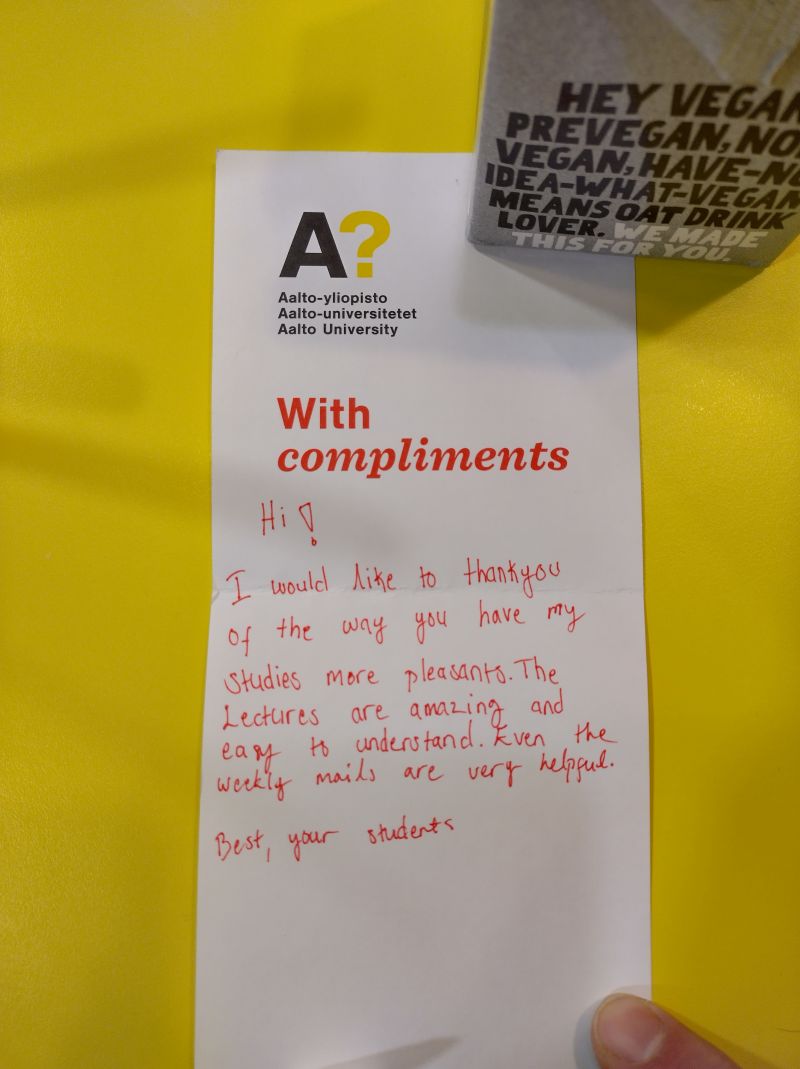 HEY VEGAN
PREVEGAN, NO
VEGAN, HAVE-NO
IDEA-WHAT-VEGAN
MEANS OAT DRINK
LOVER. WE MADE
THIS FOR YOU.
A?
Aalto-yliopisto
Aalto-universitetet
Aalto University
With
compliments
Hi!
I would like to thankyou
of the way you have my
studies more pleasants. The
Lectures are amazing and
easy to understand. Even the
weekly mails are very helpful.
Best, your students